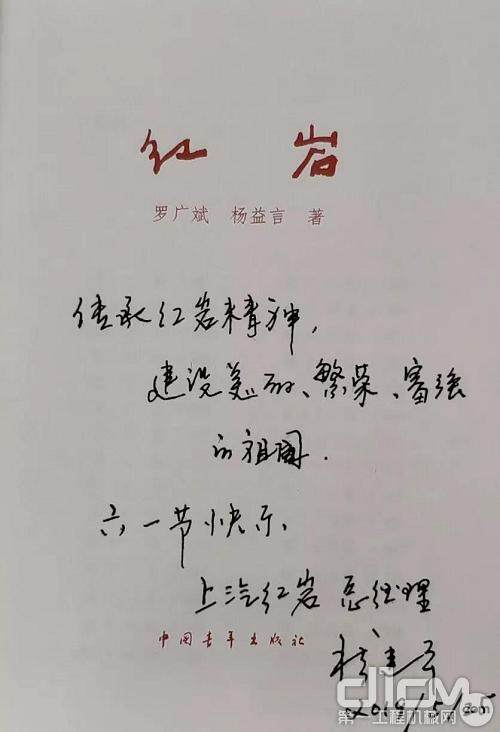 红 岩
罗广斌 杨益言 著
传承红岩精神,
建设美丽、繁荣、富强
的祖国.
六一节快乐.
上汽红岩 总经理
中国青年出版社
第一工程机械网
.com